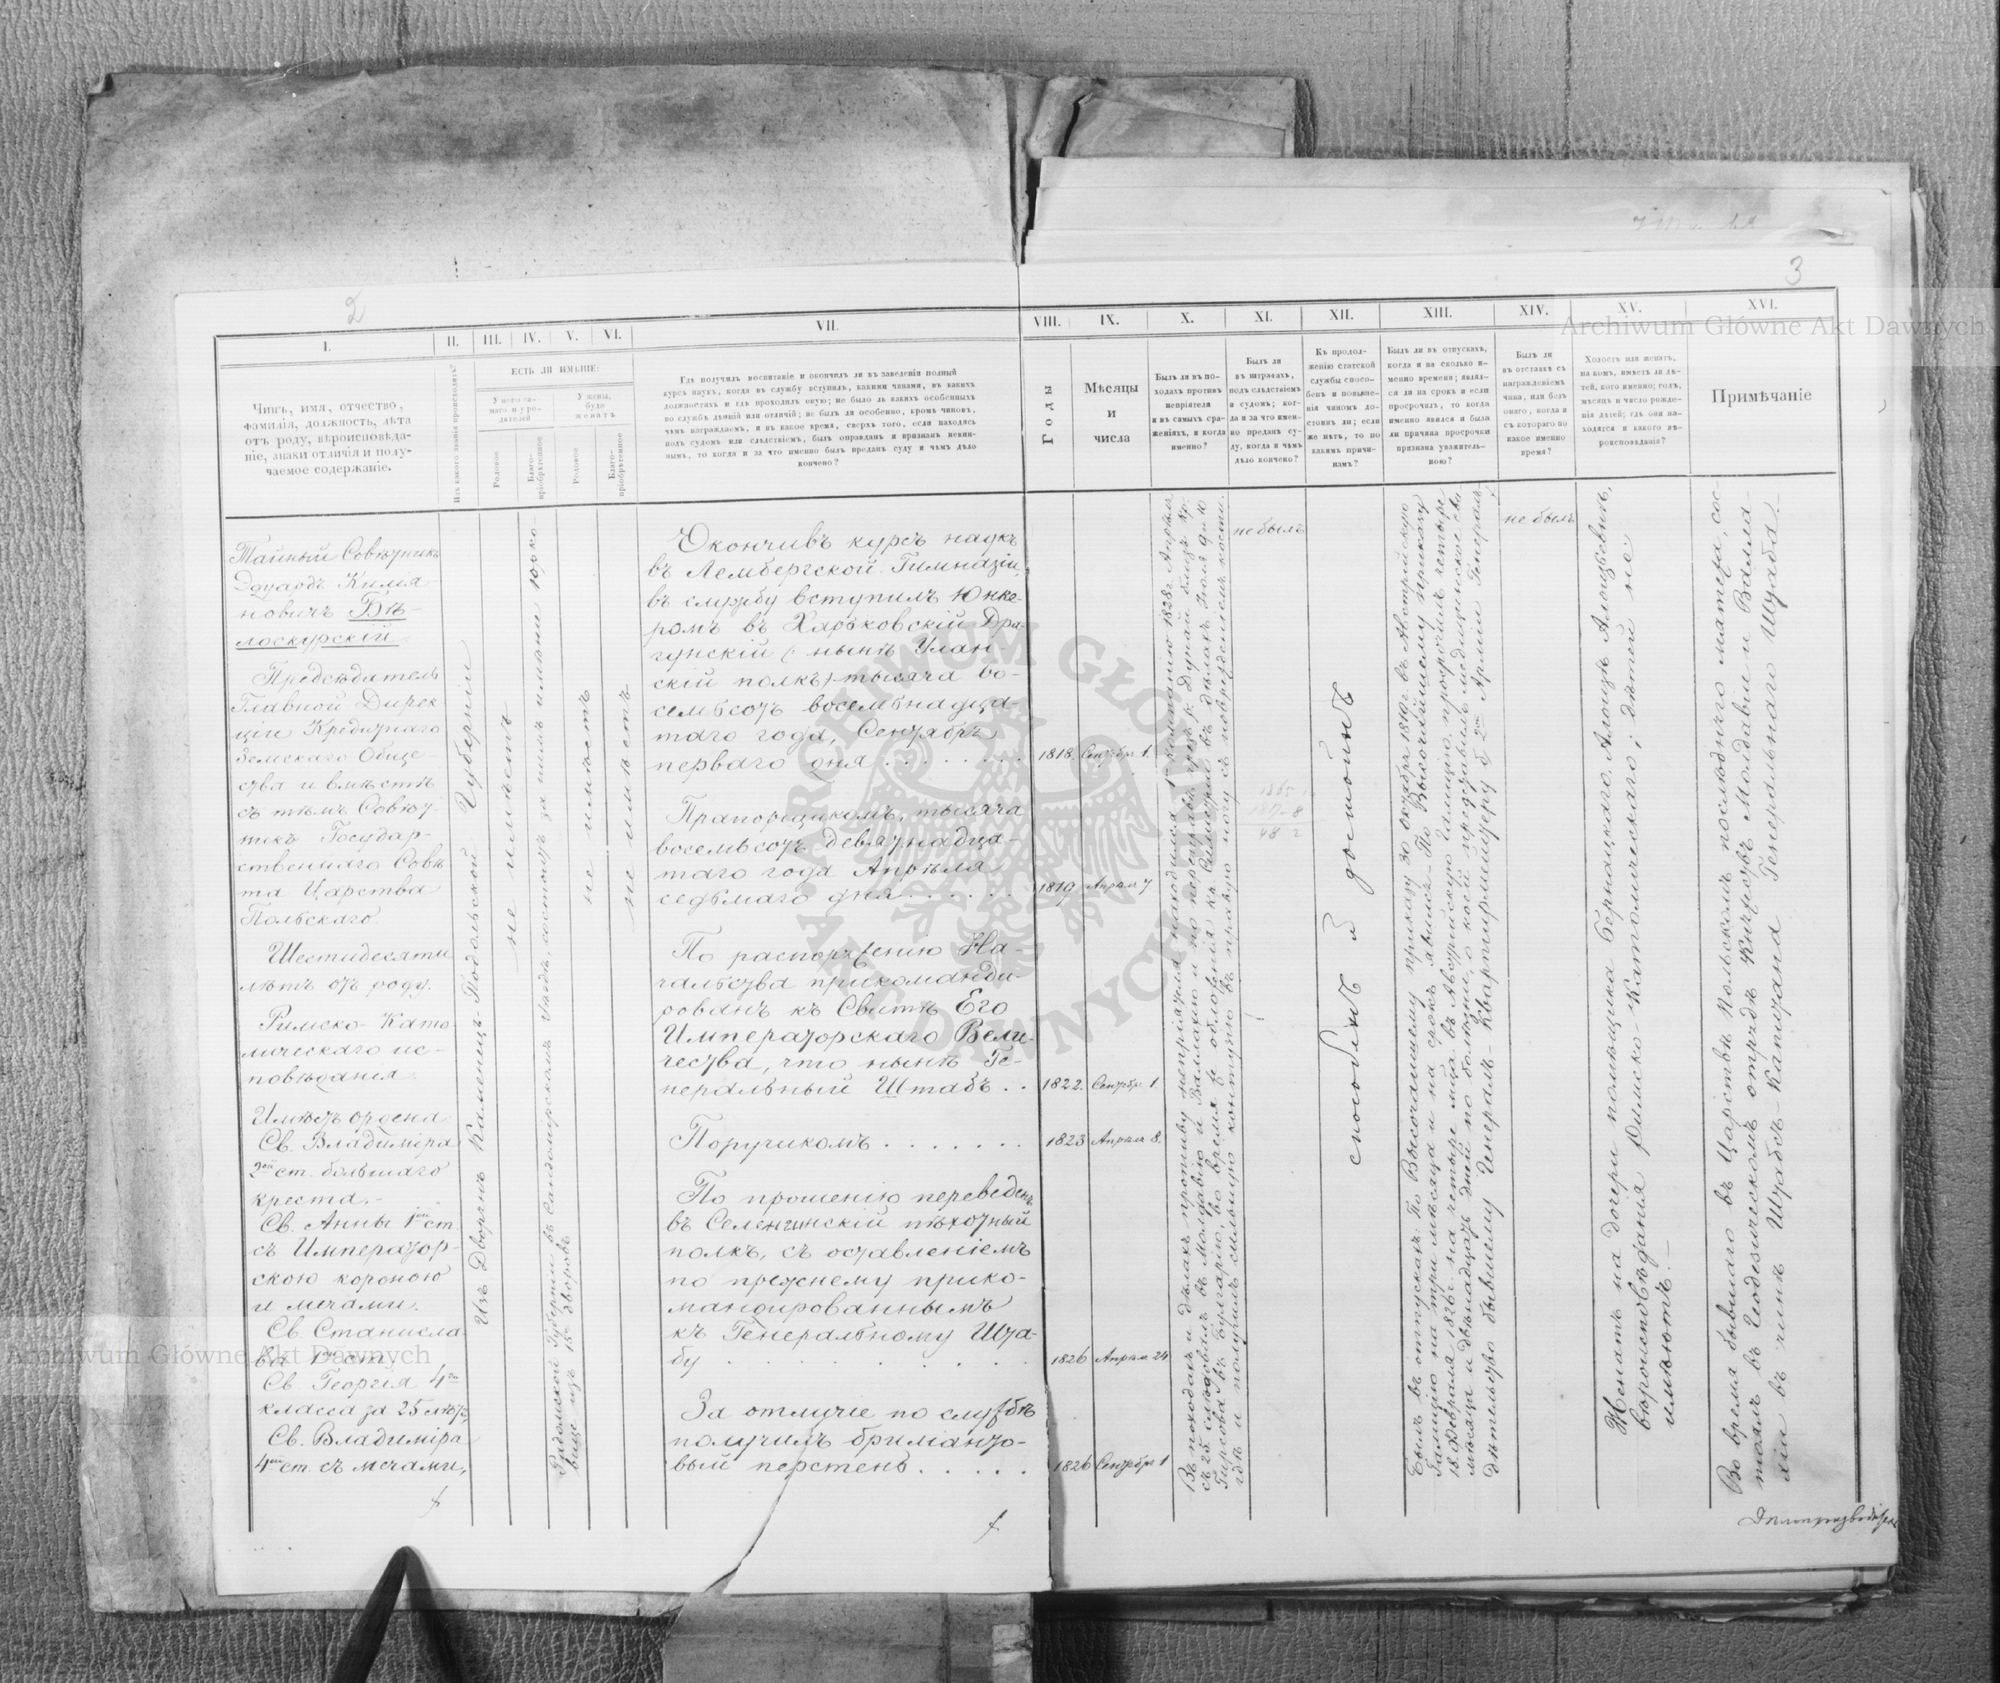 2
3
I.
II.
III.
IV.
V.
VI.
VII.
VIII.
IX.
X.
XI.
XII.
XIII.
XIV.
XV.
XVI.
Чинъ, имя, отчество,
фамилія, должность, лѣта
отъ роду, вѣроисповѣда-
ніе, знаки отличія и полу-
чаемое содержаніе.
Изъ какого званія происходитъ?
ЕСТЬ ЛИ ИМѢНІЕ:
У него са-
маго и у ро-
дителей
У жены,
буде
женатъ
Родовое
Благо-
пріобрѣтенное
Родовое
Благо-
пріобрѣтенное
Гдѣ получилъ воспитаніе и окончилъ ли въ заведеніи полный
курсъ наукъ, когда въ службу вступилъ, какими чинами, въ какихъ
должностяхъ и гдѣ проходилъ оную; не было ль какихъ особенныхъ
по службѣ дѣяній или отличій; не былъ ли особенно, кромѣ чиновъ,
чѣмъ награждаемъ, и въ какое время, сверхъ того, если находясь
подъ судомъ или слѣдствіемъ, былъ оправданъ и признанъ невин-
нымъ, то когда и за что именно былъ преданъ суду и чѣмъ дѣло
кончено?
Годы
Мѣсяцы
и
числа
Былъ ли въ по-
ходахъ противъ
непріятеля
и въ самыхъ сра-
женіяхъ, и когда
именно?
Былъ ли
въ штрафахъ,
подъ слѣдствіемъ
и судомъ; ког-
да и за что имен-
но преданъ су-
ду, когда и чѣмъ
дѣло кончено?
Къ продол-
женію статской
службы спосо-
бенъ и повыше-
нія чиномъ до-
стоинъ ли; если
же нѣтъ, то по
какимъ причи-
намъ?
Былъ ли въ отпускахъ,
когда и на сколько и-
менно времени; являл-
ся ли на срокъ и если
просрочилъ, то когда
именно явился и была
ли причина просрочки
признана уважитель-
ною?
Былъ ли
въ отставкѣ съ
награжденіемъ
чина, или безъ
онаго, когда и
съ котораго по
какое именно
время?
Холостъ или женатъ,
на комъ, имѣетъ ли дѣ-
тей, кого именно; годъ,
мѣсяцъ и число рожде-
нія дѣтей; гдѣ они на-
ходятся и какого вѣ-
роисповѣданія?
Примѣчаніе
Тайный Совѣтникъ
Эдуардъ Килія-
новичъ Бѣ-
лоскурскій.
Предсѣдатель
Главной Дирек
ціи Кредитнаго
Земскаго Обще-
ства и вмѣстѣ
съ тѣмъ Совѣт-
никъ Государ-
ственнаго Совѣ
та Царства
Польскаго.
Шестидесяти
лѣтъ отъ роду.
Римско-Като
лическаго ис-
повѣданія.
Имѣетъ ордена
Св. Владиміра
2ой ст. большаго
креста.-
Св. Анны 1ой ст.
съ Император-
скою короною
и мечами.
Св. Станисла-
ва 1ой ст.
Св. Георгія 4го
класса за 25 лѣтъ,
Св. Владиміра
4ой ст. съ мечами,
Изъ Дворянъ Каменецъ-Подольской Губерніи
не имѣетъ
Радомской Губерніи въ Сандомирскомъ Уѣздѣ, состоитъ за нимъ имѣніе
15 дворовъ
не имѣетъ
не имѣетъ
Окончивъ курсъ наукъ
въ Лембергской Гимназіи,
въ службу вступилъ Юнке-
ромъ въ Харьковскій Дра-
гунскій (нынѣ Улан-
скій полкъ) тысяча во-
семьсотъ восемнадца-
таго года, Сентября
перваго дня
1818. Сентябр 1.
Прапорщикомъ, тысяча
восемьсотъ девятнадца-
таго года Апрѣля
седьмаго дня
1819 Апрѣля 7
По распоряженію На-
чальства прикоманди-
рованъ къ Свитѣ Его
Императорскаго Вели-
чества, что нынѣ Ге-
неральный Штабъ
1822. Сентябр 1
Поручикомъ
1823 Апрѣля 8.
По прошенію переведенъ
въ Селенгинскій пѣхотный
полкъ, съ оставленіемъ
по прежнему прико-
мандированнымъ
къ Генеральному Шта-
бу
1826 Апрѣля 24
За отличіе по службѣ
получилъ брилианто-
вый перстень
1826 Сентябр 1
Въ походахъ и дѣлахъ противу непріятеля находился
съ 25 въ Молдавію и Валлахію и по
Гирсова въ Булгарію, во время
гдѣ и получилъ сильную контузію въ правую ногу съ поврежденіемъ кости.
не былъ
48 г
способенъ и достоинъ
Былъ въ отпускахъ: По Высочайшему приказу 30 октября 1819 г. въ Австрійскую
Галицію на три мѣсяца и на срокъ явился. По Высочайшему приказу
18 Февраля 1826 г. на четыре мѣсяца въ Австрійскую Галицію, просрочилъ четыре
мѣсяца и двѣнадцать дней по болѣзни, о коей представилъ медицинское сви
дѣтельство бывшему Генералъ-Квартирмистеру б. 2ой Арміи Генералъ-
не былъ
Женатъ на дочери помѣщика Бернацкаго, Алоизѣ Алоизѣевнѣ,
вѣроисповѣданія Римско-Католическаго; дѣтей не
имѣютъ.
Во время бывшаго въ Царствѣ Польскомъ послѣдняго мятежа, сос-
тоялъ въ Геодезическомъ отрядѣ Капитаномъ въ Молдавіи и Валла-
хіи въ чинѣ Штабсъ-Капитана Генеральнаго Штаба.
Archiwum Główne Akt Dawnych
Archiwum Główne Akt Dawnych
ARCHIWUM GŁÓWNE AKT DAWNYCH